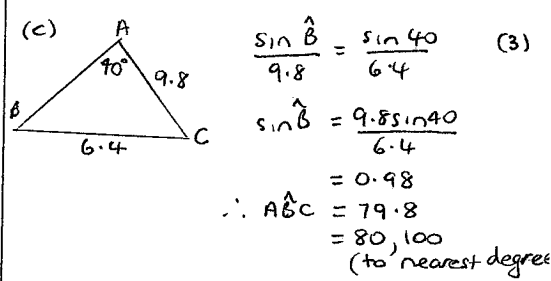 (c)
A
40°
9.8
B
C
6.4
sin B̂ / 9.8 = sin 40 / 6.4 (3)
sin B̂ = 9.8sin40 / 6.4
= 0.98
∴ AB̂C = 79.8
= 80, 100
(to nearest degree